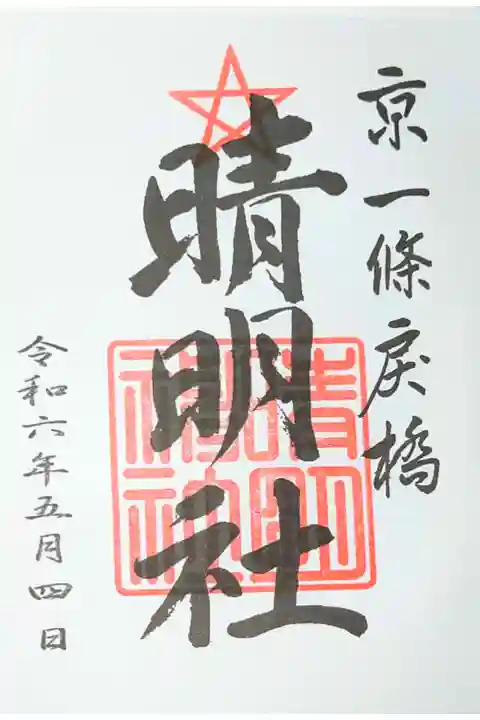 京一條戻橋
晴明社
晴明
神社
令和六年五月四日